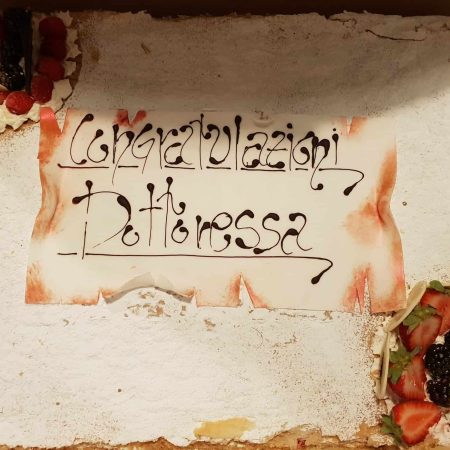 Congratulazioni
Dottoressa